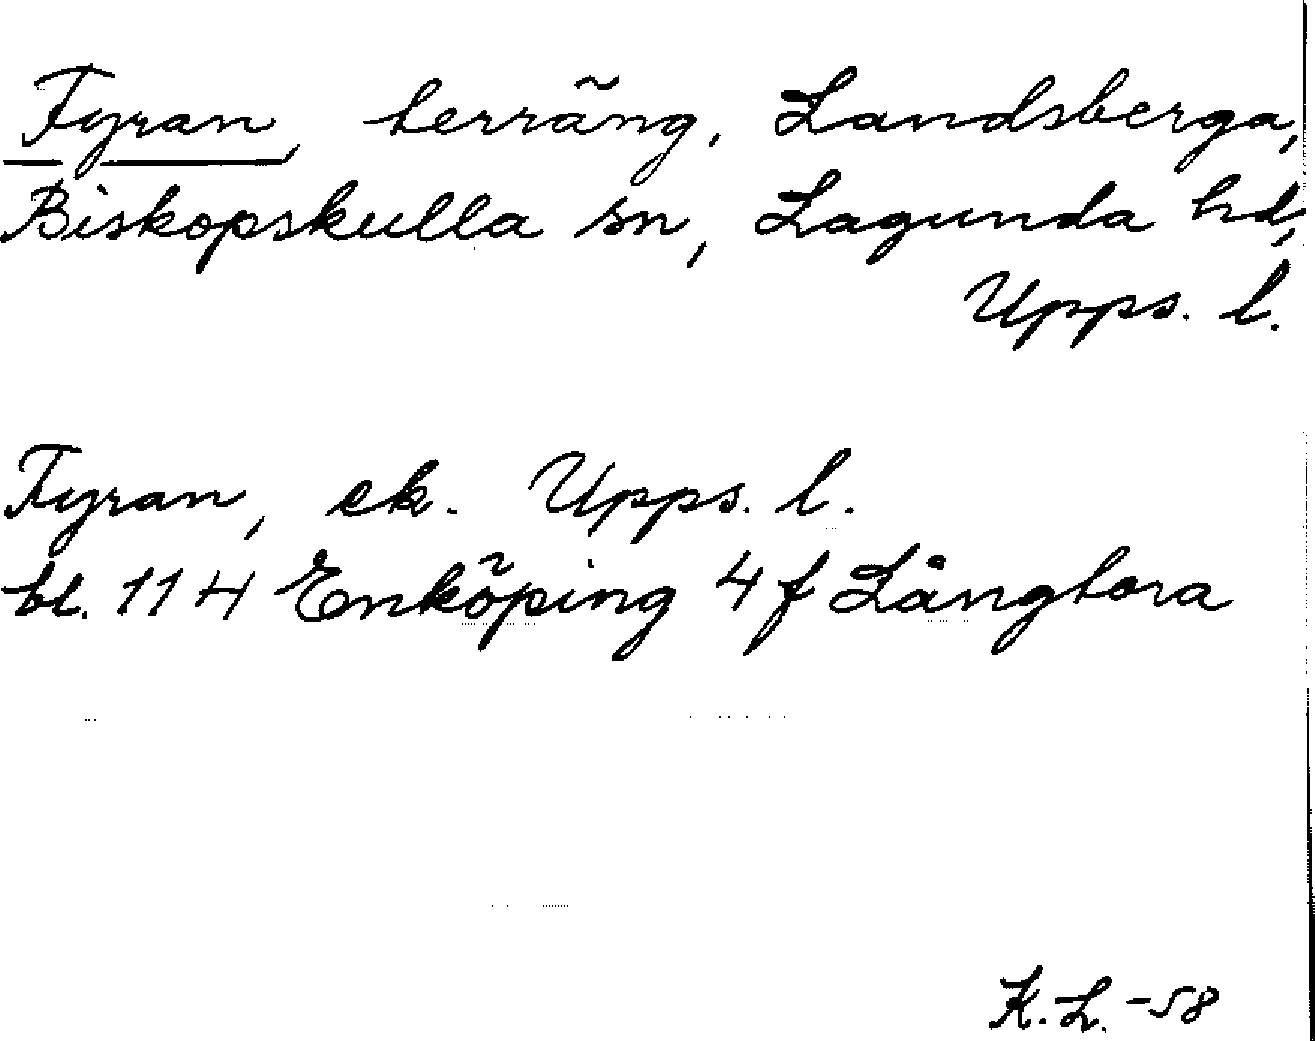 Fyran, terräng, Landsberga,
Biskopskulla sn, Lagunda hd,
Upps. l.
Fyran, ek. Upps. l.
bl. 11 H Enköping 4 f Långtora
K. L. -58